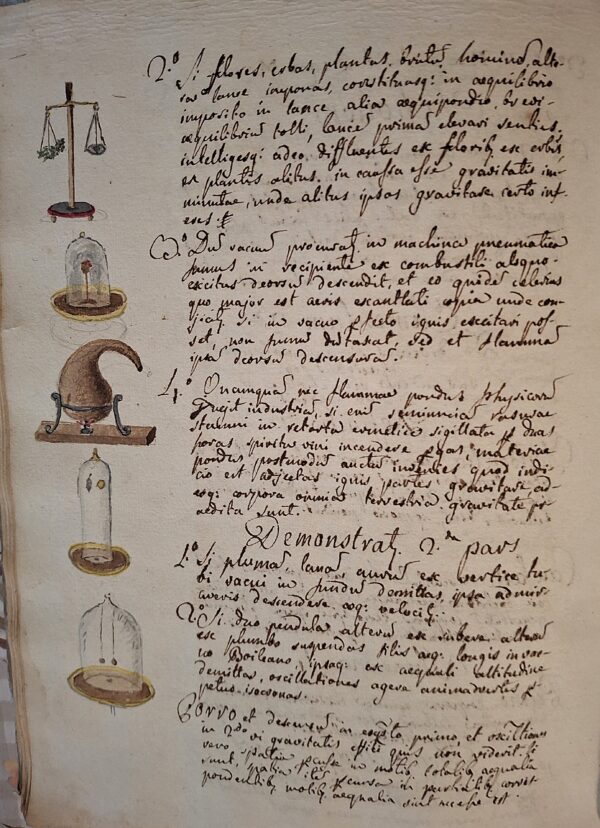 2.º Si flores, erbas, plantas, brutũ, hominẽ, alte-
rae lance imponas, constituasq: in aequilibrio
imposito in lance alia aequipondio, brevi
aequilibriũ tolli, lancẽ primã elevari senties,
intelligesq: adeo, diffluentes ex florib, ex erbis
ex plantis alitus, in caussa esse gravitatis im-
minutae, unde alitus ipsos gravitare certo inf-
eres.
3.º Dũ vacuũ procurat, in machina pneumatica
fumus in recipiente ex combustili aloquo
excitus deorsũ descendit, et eo quidẽ celerius
quo major est aeris exantlati copia unde con-
si in vacuo ignis excitari pos-
set, non fumũ dũtaxat, sed et flammã
ipsã deorsũ descensurã.
4.º Quamquã nec flammae pondus physicorũ
fugit industriã, si enĩ semiuncia rasurae
stamni in retorta ermetice sigillata p duas
horas spiritus vini incendere pgas, materiae
pondus postmodũ auctũ invenies quod indi-
cio est adjectas ignis partes gravitare, ad-
eoq: corpora omnia terrestria gravitate
praedita sunt.
Demonstrat. 2.ae pars
1.º Si plumã, lanã, aurũ ex vertice tu-
bi vacui in fundũ demittas, ipsa admira-
veris descendere aeq: velocit.
2.º Si duo pendula alterũ ex subere, alterũ
ex plumbo suspendas filis aeq: longis in va-
cuo Boileano, ipsaq: ex aequali altitudine
demittas, oscillationes agere animadvertes
petuo isocronas.
Porro et descensũ in primo, et oscillationũ
in 2do vi gravitatis effici quis non viderit. Si
vero spatia in motib, totalib, aequalia
sunt, spatia itẽ pcursa in partialib, corres-
pondentib, motib, aequalia sint necesse est.